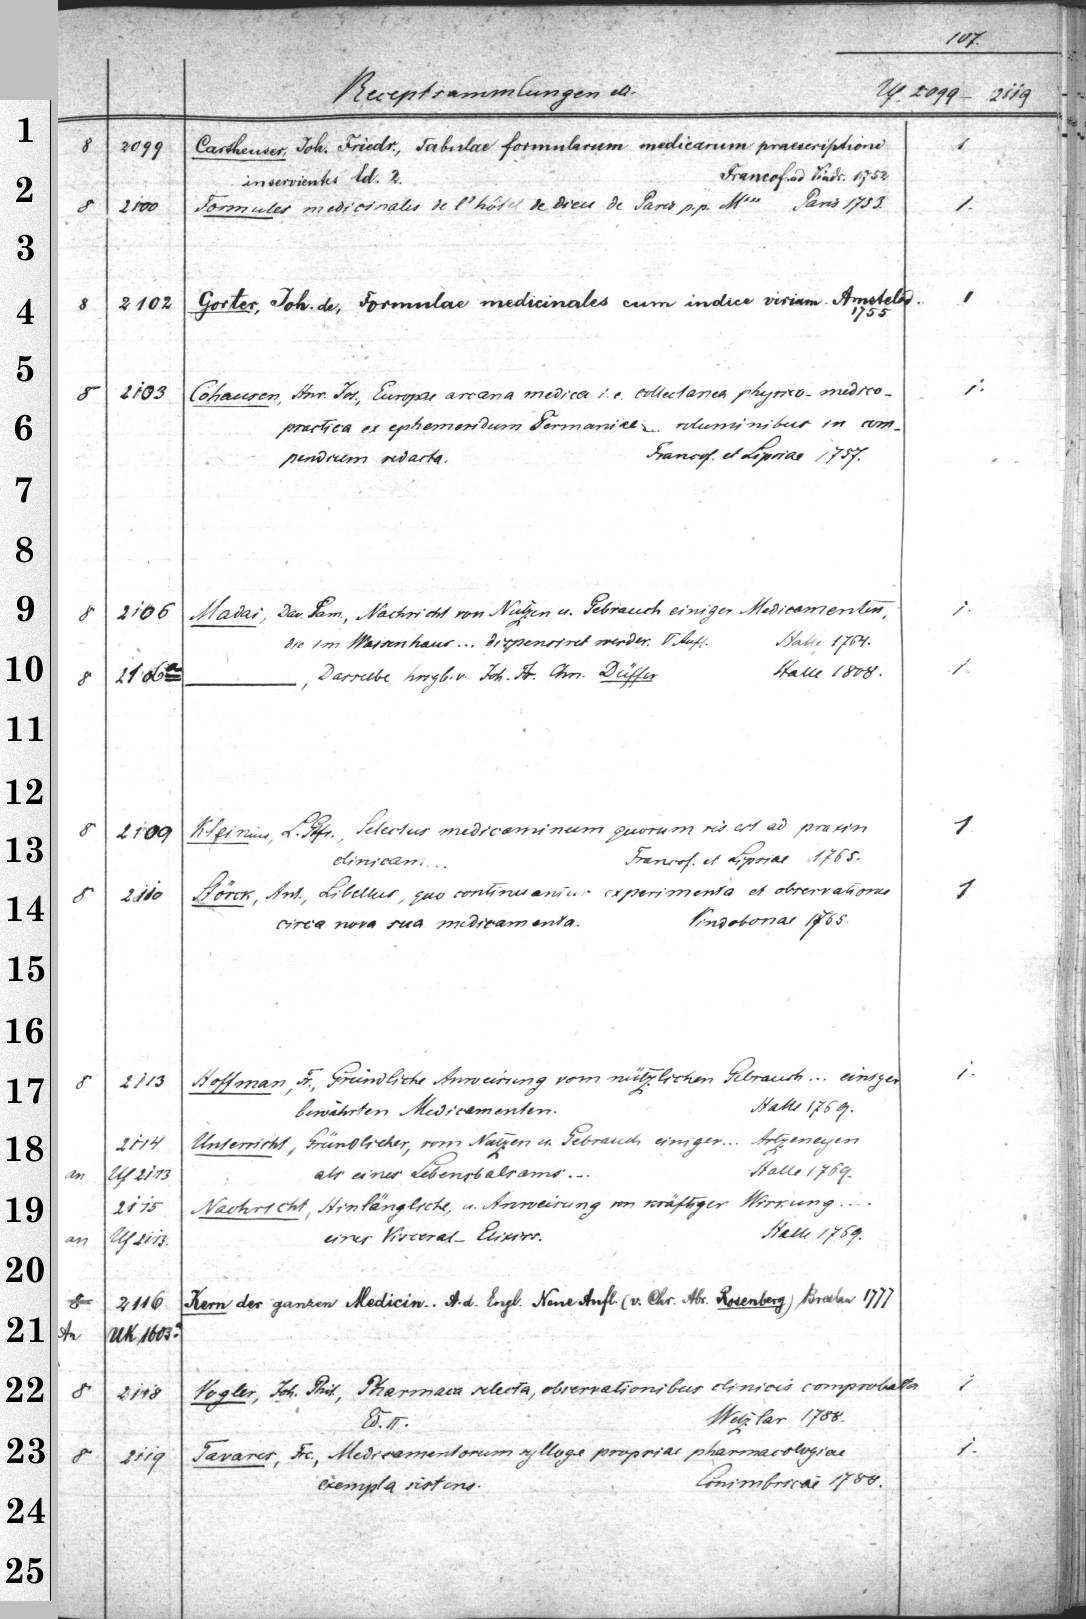 107.
Receptsammlungen etc. Uf. 2099 – 2119
1
8 2099 Cartheuser, Joh. Friedr., Tabulae formularum medicarum praescriptioni 1
inservientes Ed. 2. Francof. ad Viadr. 1752
2
8 2100 Formules medicinales de l'hôtel de dieu de Paris p.p. Paris 1753. 1.
3
4
8 2102 Gorter, Joh. de, Formulae medicinales cum indice virium. Amstelod. 1
1755
5
8 2103 Cohausen, Hnr. Jos., Europae arcana medica i. e. collectanea physico-medico- 1.
6
practica ex ephemeridum Germaniae ... voluminibus in com-
pendium redacta. Francof. et Lipsiae 1757.
7
8
9
8 2106 Madai, Dav. Sam., Nachricht von Nutzen u. Gebrauch einiger Medicamenten, 1.
die im Waisenhaus ... dispensiret werden. V. Aufl. Halle 1764.
10
8 2106a , Dasselbe hrsgb. v. Joh. Fr. Chn. Düffer Halle 1808. 1.
11
12
8 2109 Kleinius, L. Gfr., Selectus medicaminum quorum vis est ad praxin 1
13
clinicam ... Francof. et Lipsiae 1765.
14
8 2110 Störck, Ant., Libellus, quo continuantur experimenta et observationes 1
circa nova sua medicamenta. Vindobonae 1765.
15
16
17
8 2113 Hoffman, Fr., Gründliche Anweisung vom nützlichen Gebrauch ... einiger 1.
bewährten Medicamenten. Halle 1769.
18
2114 Unterricht, Gründlicher, vom Nutzen u. Gebrauch einiger ... Artzeneyen
an Uf 2113 als eines Lebensbalsams ... Halle 1769.
19
2115 Nachricht, Hinlängliche, u. Anweisung von kräftiger Wirkung ....
an Uf 2113. eines Visceral-Elixirs. Halle 1769.
20
8 2116 Kern der ganzen Medicin .. A. d. Engl. Neue Aufl. (v. Chr. Abr. Rosenberg) Breslau 1777
21
An UK 1603.a
22
8 2118 Vogler, Joh. Phil., Pharmaca selecta, observationibus clinicis comprobata 1
Ed. II. Wetzlar 1788.
23
8 2119 Tavares, Frc., Medicamentorum sylloge propriae pharmacologiae 1.
exempla sistens. Conimbricae 1788.
24
25